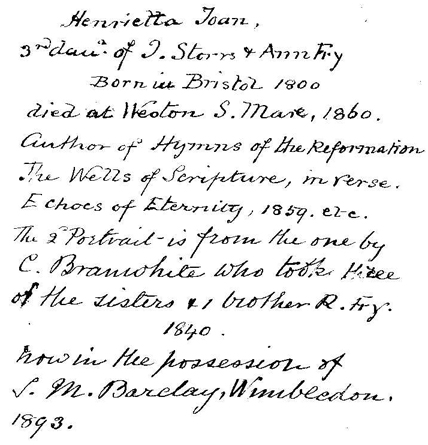 Henrietta Joan,
3rd daur. of J. Storrs & Ann Fry
Born in Bristol 1800
died at Weston S. Mare, 1860.
Author of Hymns of the Reformation
The Wells of Scripture, in verse.
Echoes of Eternity, 1859. etc.
The 2d Portrait is from the one by
C. Branwhite who took three
of the sisters & 1 brother R. Fry.
1840.
now in the possession of
S. M. Barclay, Wimbledon.
1893.